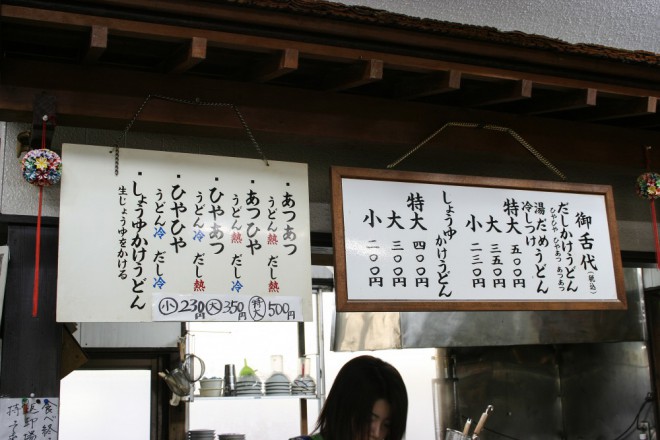 御古代(税込)
だしかけうどん
ひやひや ひやあつ あつあつ
湯だめうどん
冷しつけ
特大 五〇〇円
大 三五〇円
小 二三〇円
しょうゆかけうどん
特大 四〇〇円
大 三〇〇円
小 二〇〇円
・あつあつ
うどん熱 だし熱
・あつひや
うどん熱 だし冷
・ひやあつ
うどん冷 だし熱
・ひやひや
うどん冷 だし冷
・しょうゆかけうどん
生じょうゆをかける
小230円 大350円 特大500円
食べ終